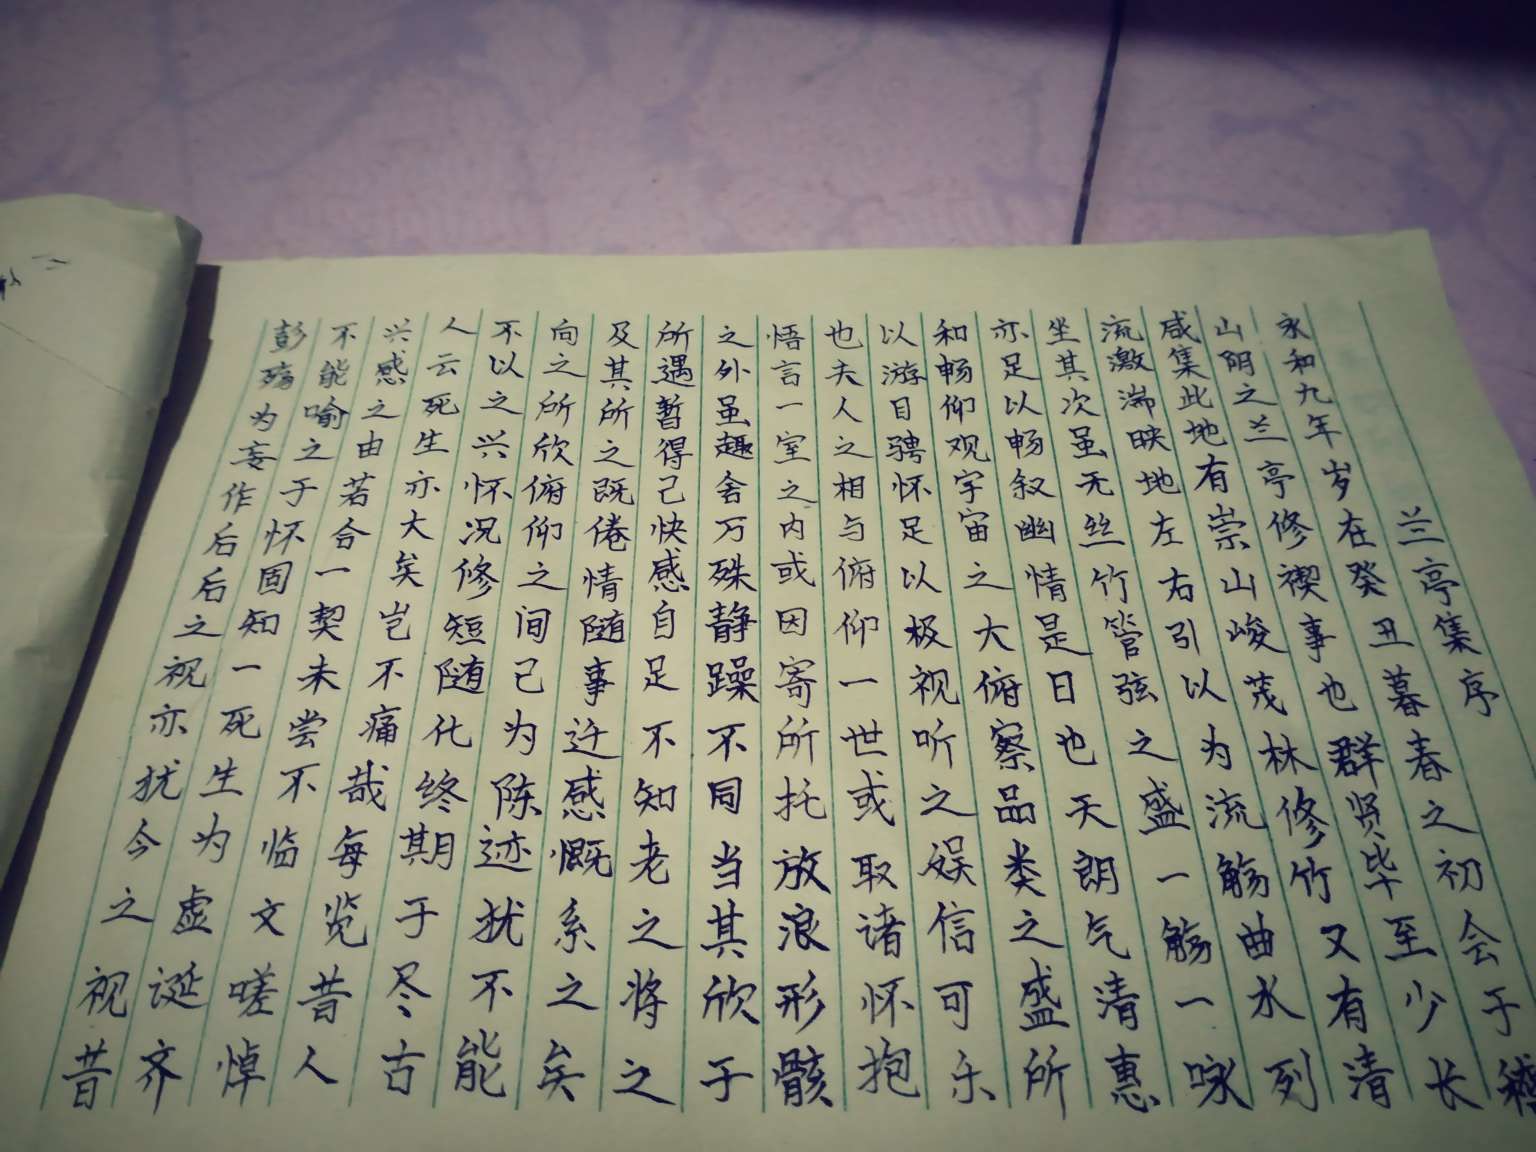 兰亭集序
永和九年岁在癸丑暮春之初会于稽
山阴之兰亭修禊事也群贤毕至少长
咸集此地有崇山峻茂林修竹又有清
流激湍映地左右引以为流觞曲水列
坐其次虽无丝竹管弦之盛一觞一咏
亦足以畅叙幽情是日也天朗气清惠
和畅仰观宇宙之大俯察品类之盛所
以游目骋怀足以极视听之娱信可乐
也夫人之相与俯仰一世或取诸怀抱
悟言一室之内或因寄所托放浪形骸
之外虽趣舍万殊静躁不同当其欣于
所遇暂得己快感自足不知老之将之
及其所之既倦情随事迁感慨系之矣
向之所欣俯仰之间己为陈迹扰不能
不以之兴怀况修短随化终期于尽古
人云死生亦大矣岂不痛哉每览昔人
兴感之由若合一契未尝不临文嗟悼
不能喻之于怀固知一死生为虚诞齐
彭殇为妄作后后之视亦扰今之视昔